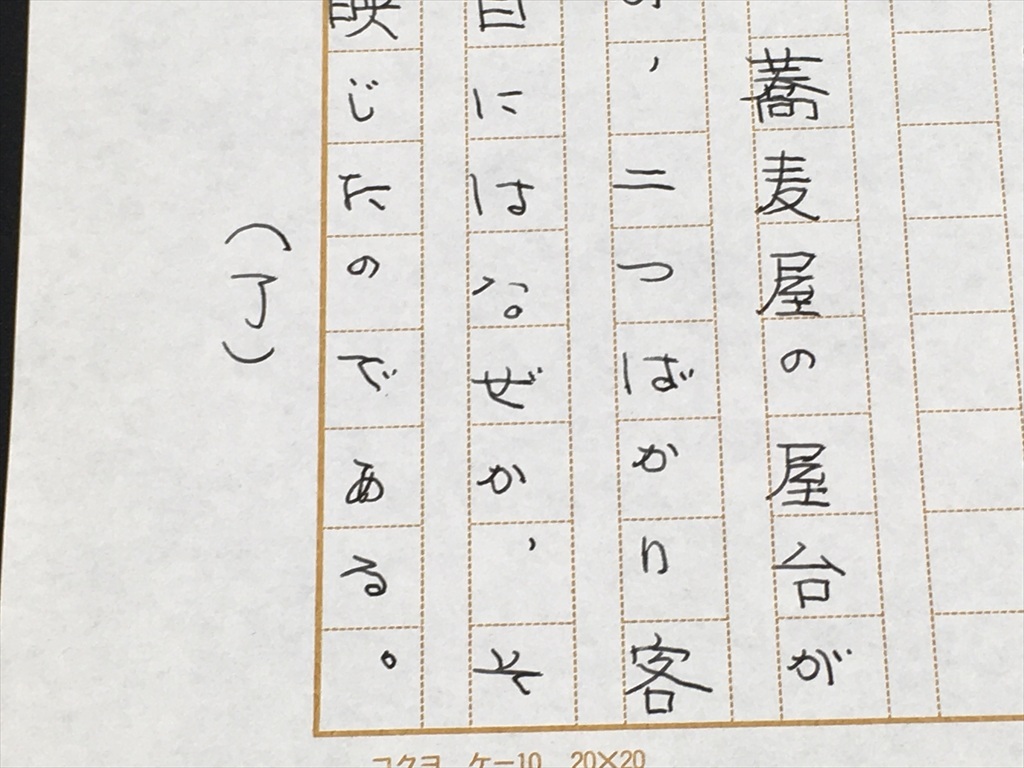 蕎麦屋の屋台が
、二つばかり客
にはなぜか、そ
映じたのである。
（了）
コクヨ ケー10 20×20